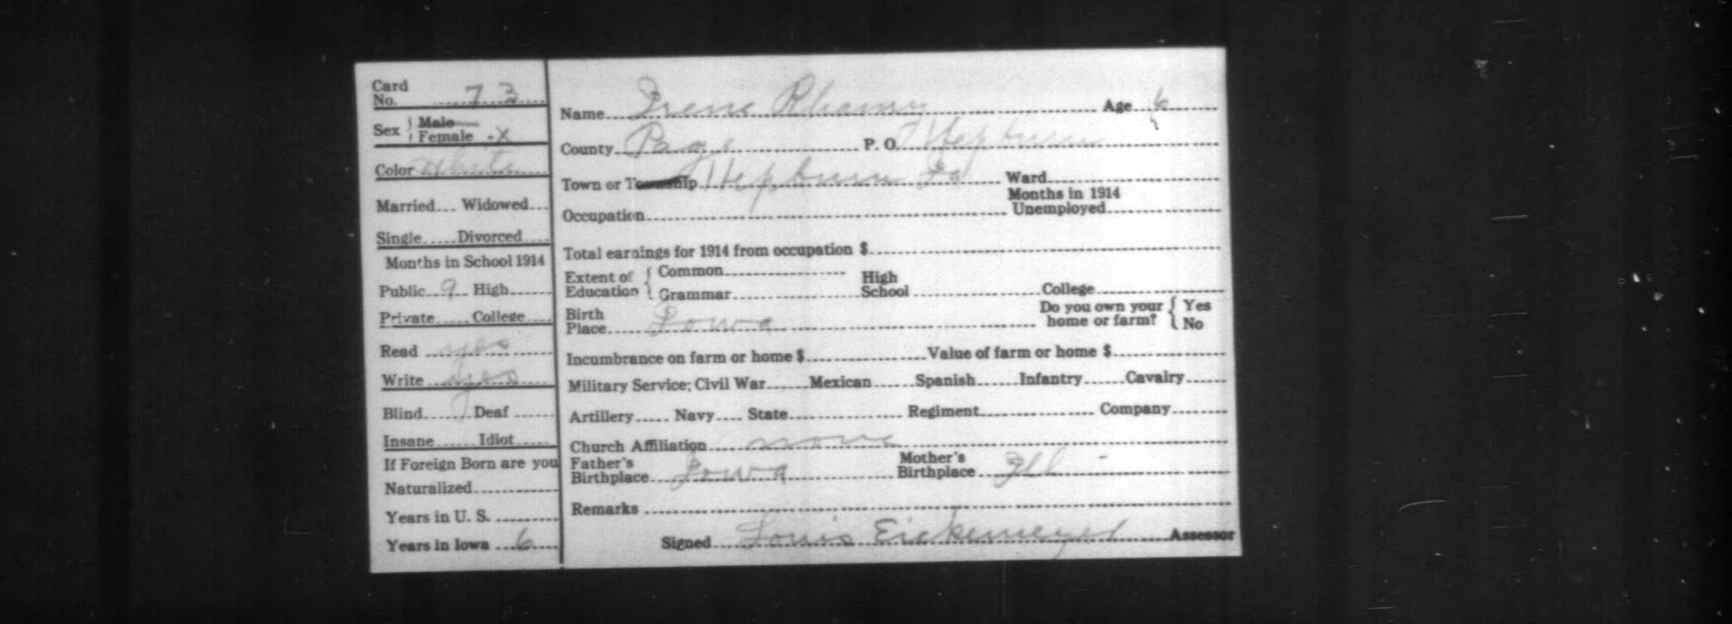 Card No. 73
Sex { Male Female X
Color White
Married Widowed
Single Divorced
Months in School 1914
Public 9 High
Private College
Read yes
Write yes
Blind Deaf
Insane Idiot
If Foreign Born are you
Naturalized
Years in U. S.
Years in Iowa 6
Name Irene Age 6
County Page P. O. Hepburn
Town or Township Hepburn Ia Ward
Occupation Months in 1914 Unemployed
Total earnings for 1914 from occupation $
Extent of Education { Common Grammar High School College
Birth Place Iowa Do you own your home or farm? { Yes No
Incumbrance on farm or home $ Value of farm or home $
Military Service; Civil War Mexican Spanish Infantry Cavalry
Artillery Navy State Regiment Company
Church Affiliation none
Father's Birthplace Iowa Mother's Birthplace Ill
Remarks
Signed Louis Eickemeyer Assessor